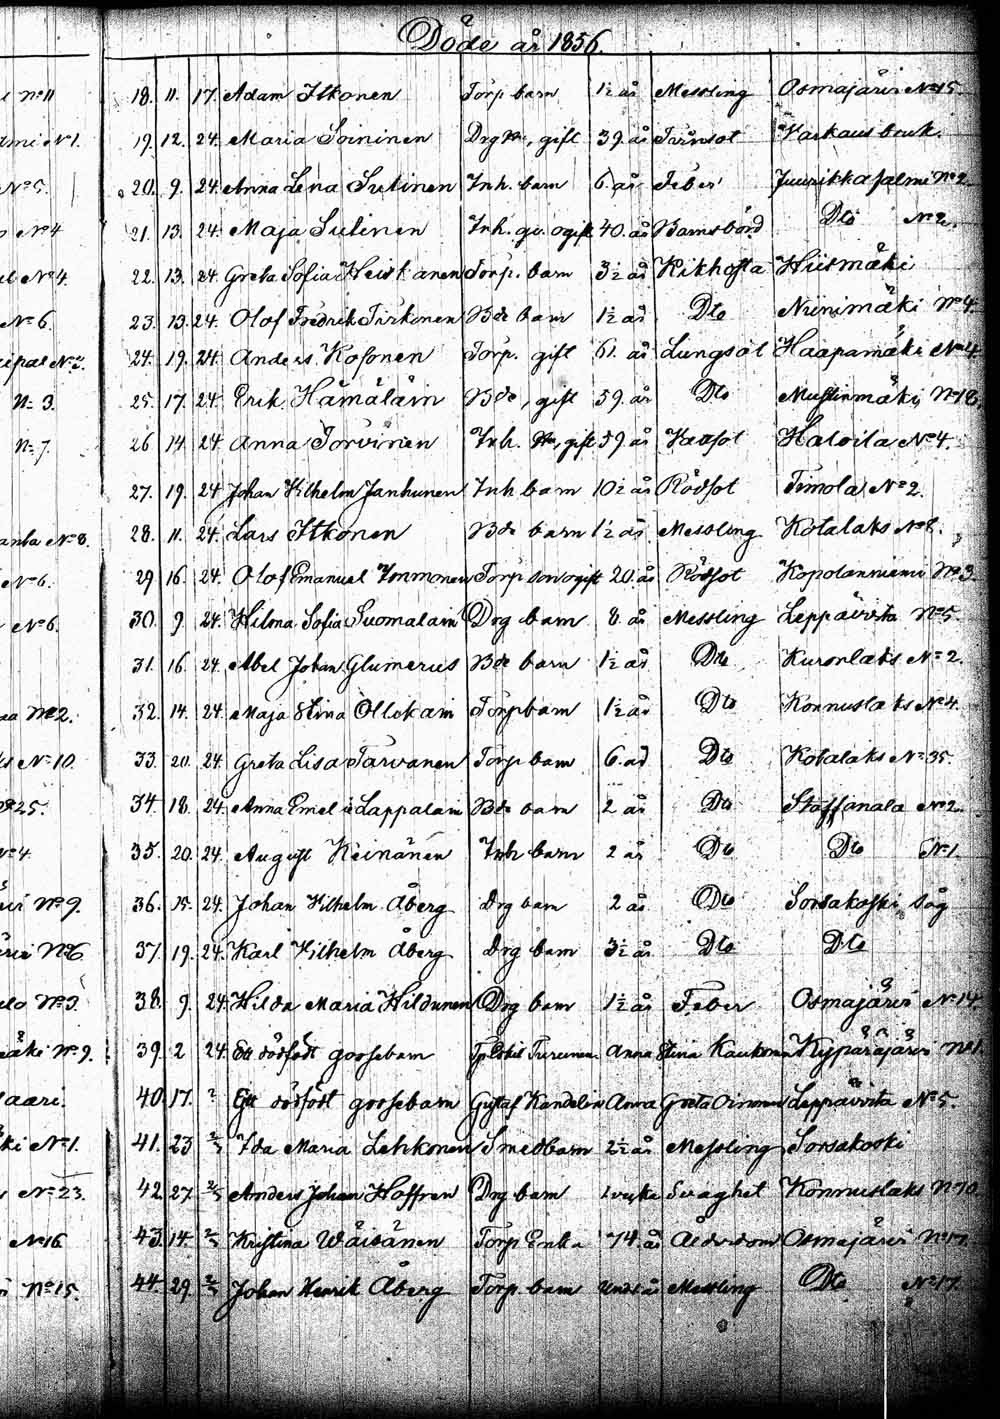 Döde år 1856.
18. 11. 17. Adam Itkonen Torp barn 1½ år Messling Osmajärvi No 15.
19. 12. 24. Maria Soininen Drg, gift 39. år Tvinsot Warkaus bruk.
20. 9. 24. Anna Lena Sutinen Inh. barn 6. år Feber Juurikkasalmi No 2.
21. 13. 24. Maja Sutinen Inh. qv. ogift 40. år Barnsbörd Dto No 2.
22. 13. 24. Greta Sofia Heiskanen Torp. barn 3½ år Kikhosta Hiismäki
23. 13. 24. Olof Fredrik Tirkonen Bde barn 1½ år Dto Niinimäki No 4.
24. 19. 24. Anders Kosonen Torp. gift 61. år Lungsot Haapamäki No 4.
25. 17. 24. Erik Hämäläin Bde, gift 59. år Dto Mustinmäki No 18.
26 14. 24 Anna Torvinen Inh. gift 59. år Hatoila No 4.
27. 19. 24 Johan Wilhelm Janhunen Inh barn 10½ år Rödsot Timola No 2.
28. 11. 24. Lars Itkonen Bde barn 1½ år Messling Kotalaks No 8.
29 16. 24. Olof Emanuel Immonen Torp son ogift 20. år Rödsot Kopolanniemi No 3
30. 9. 24. Hilma Sofia Suomalain Drg barn 8. år Messling Leppävirta No 5.
31. 16. 24. Abel Johan Glumerus Bde barn 1½ år Dto Kuronlaks No 2.
32. 14. 24. Maja Stina Ollikain Torp barn 1½ år Dto Konnuslaks No 4.
33. 20. 24. Greta Lisa Tarvanen Torp barn 6. år Dto Kotalaks No 35.
34 18. 24. Anna Emelie Lappalain Bde barn 2 år Dto Staffanala No 2.
35. 20. 24. August Heinänen Inh barn 2 år Dto Dto No 1.
36. 15. 24. Johan Wilhelm Åberg Drg barn 2 år Dto Sorsakoski såg
37. 19. 24. Karl Wilhelm Åberg Drg barn 3½ år Dto Dto
38. 9. 24. Hilda Maria Hildunen Drg barn 1½ år Feber Osmajärvi No 14.
39. 2 24. Ett dödfödt gossebarn Tp Eskil Turunen Anna Stina Kaukonen Kypäräjärvi No 1.
40. 17. " Ett dödfödt gossebarn Gustaf Kandelin Anna Greta Oinonen Leppävirta No 5.
41. 23 2/3 Ida Maria Lehkonen Smedbarn 2½ år Messling Sorsakoski
42. 27. 2/3 Anders Johan Hoffren Drg barn 1 vecka Svaghet Konnuslaks No 10.
43. 14. 2/3 Kristina Wäisänen Torp Enka 74. år Ålderdom Osmajärvi No 17.
44. 29. 2/3 Johan Henrik Åberg Torp. barn Messling Dto No 17.